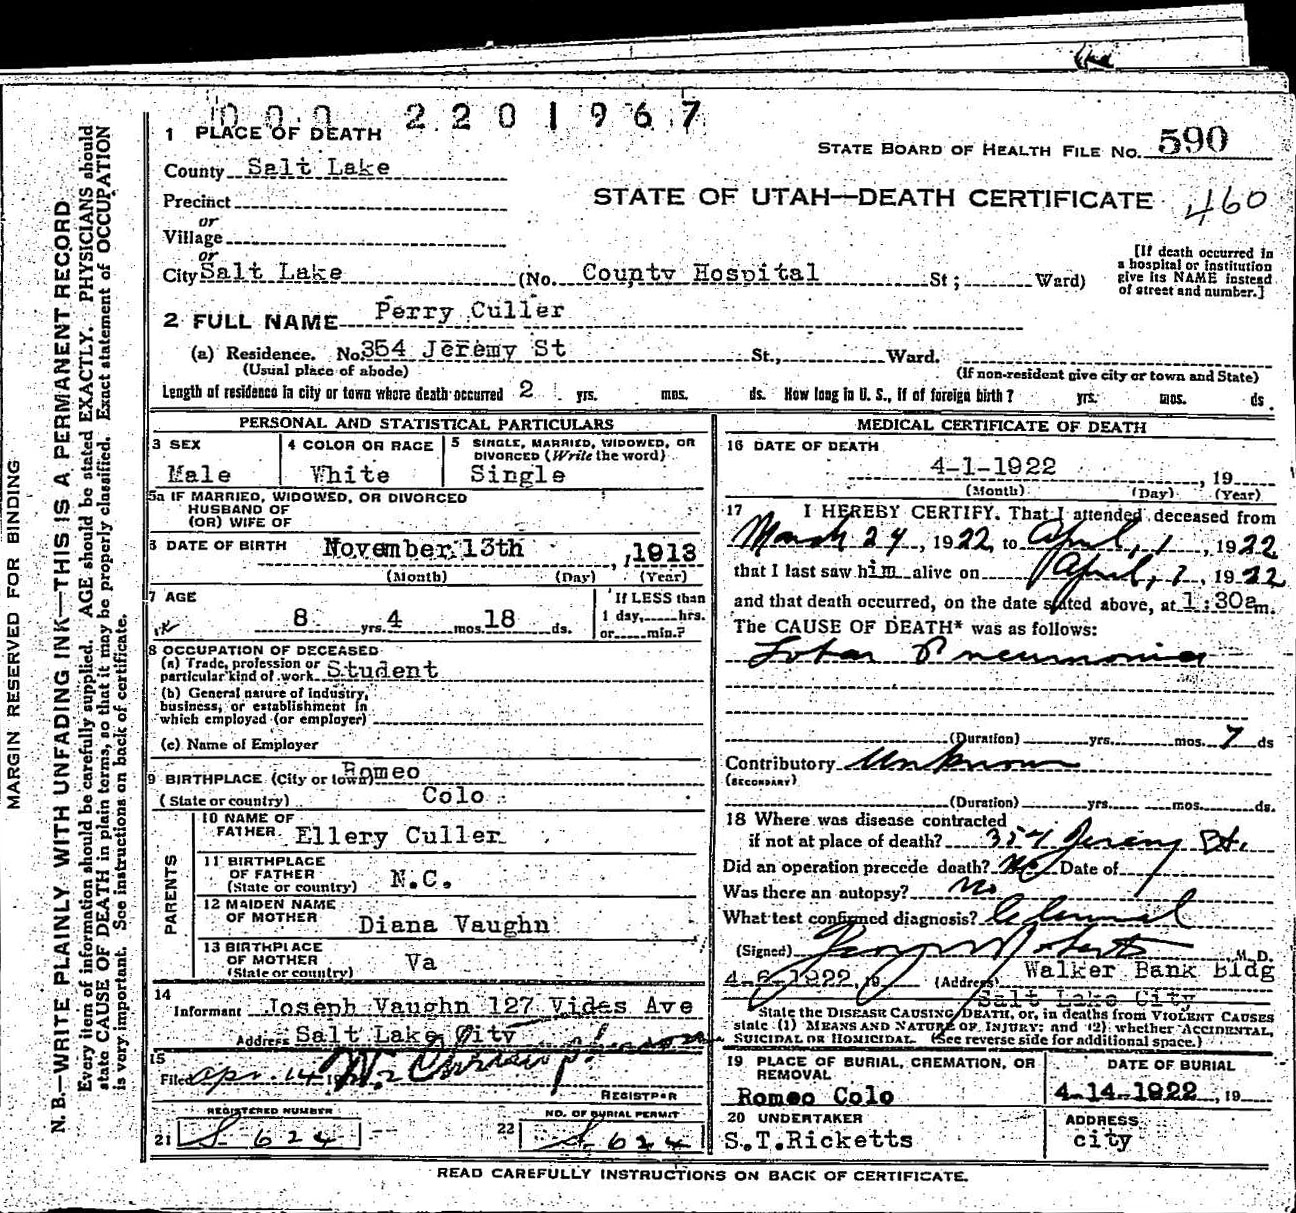 000 2201967
1 PLACE OF DEATH
STATE BOARD OF HEALTH FILE No. 590
County Salt Lake
STATE OF UTAH—DEATH CERTIFICATE 460
Precinct
or
Village
or
City Salt Lake (No. County Hospital St; Ward)
[If death occurred in
a hospital or institution
give its NAME instead
of street and number.]
2 FULL NAME Perry Culler
(a) Residence. No. 354 Jeremy St St., Ward.
(Usual place of abode) (If non-resident give city or town and State)
Length of residence in city or town where death occurred 2 yrs. mos. ds. How long in U. S., if of foreign birth? yrs. mos. ds.
PERSONAL AND STATISTICAL PARTICULARS
3 SEX
Male
4 COLOR OR RACE
White
5 SINGLE, MARRIED, WIDOWED, OR
DIVORCED (Write the word)
Single
5a IF MARRIED, WIDOWED, OR DIVORCED
HUSBAND OF
(OR) WIFE OF
6 DATE OF BIRTH November 13th, 1913
(Month) (Day) (Year)
7 AGE
8 yrs. 4 mos. 18 ds.
If LESS than
1 day, hrs.
or min.?
8 OCCUPATION OF DECEASED
(a) Trade, profession or
particular kind of work Student
(b) General nature of industry,
business, or establishment in
which employed (or employer)
(c) Name of Employer
9 BIRTHPLACE (City or town) Romeo
(State or country) Colo
PARENTS
10 NAME OF
FATHER Ellery Culler
11 BIRTHPLACE
OF FATHER
(State or country) N.C.
12 MAIDEN NAME
OF MOTHER
Diana Vaughn
13 BIRTHPLACE
OF MOTHER
(State or country) Va
14
Informant Joseph Vaughn 127 Vides Ave
Address Salt Lake City
15
Filed Apr. 14 19
REGISTRAR
REGISTERED NUMBER
21 S 624
NO. OF BURIAL PERMIT
22 S 624
MEDICAL CERTIFICATE OF DEATH
16 DATE OF DEATH
4-1-1922, 19
(Month) (Day) (Year)
17 I HEREBY CERTIFY. That I attended deceased from
March 24, 1922, to April, 1, 1922
that I last saw him alive on April, 1, 1922
and that death occurred, on the date stated above, at 1:30am.
The CAUSE OF DEATH* was as follows:
Lobar Pneumonia
(Duration) yrs. mos. 7 ds
Contributory Unknown
(SECONDARY)
(Duration) yrs. mos. ds.
18 Where was disease contracted
if not at place of death? 354 Jeremy St.
Did an operation precede death? No Date of
Was there an autopsy? no
What test confirmed diagnosis?
(Signed) M. D.
4-6-1922, 19 (Address) Walker Bank Bldg
Salt Lake City
State the DISEASE CAUSING DEATH, or, in deaths from VIOLENT CAUSES
state (1) MEANS AND NATURE OF INJURY; and (2) whether ACCIDENTAL,
SUICIDAL OR HOMICIDAL. (See reverse side for additional space.)
19 PLACE OF BURIAL, CREMATION, OR
REMOVAL
Romeo Colo
DATE OF BURIAL
4-14-1922, 19
20 UNDERTAKER
S.T.Ricketts
ADDRESS
city
READ CAREFULLY INSTRUCTIONS ON BACK OF CERTIFICATE.
MARGIN RESERVED FOR BINDING
N. B.—WRITE PLAINLY WITH UNFADING INK—THIS IS A PERMANENT RECORD
Every item of information should be carefully supplied. AGE should be stated EXACTLY. PHYSICIANS should
state CAUSE OF DEATH in plain terms, so that it may be properly classified. Exact statement of OCCUPATION
is very important. See instructions on back of certificate.